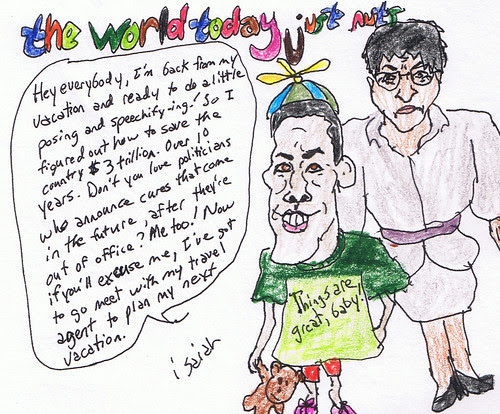 the world today just nuts
Hey everybody, I'm back from my
vacation and ready to do a little
posing and speechifying! So I
figured out how to save the
country $3 trillion. Over 10
years. Don't you love politicians
who announce cures that come
in the future, after they're
out of office? Me too! Now
if you'll excuse me, I've got
to go meet with my travel
agent to plan my next
vacation.
isaiah
Things are
great, baby.